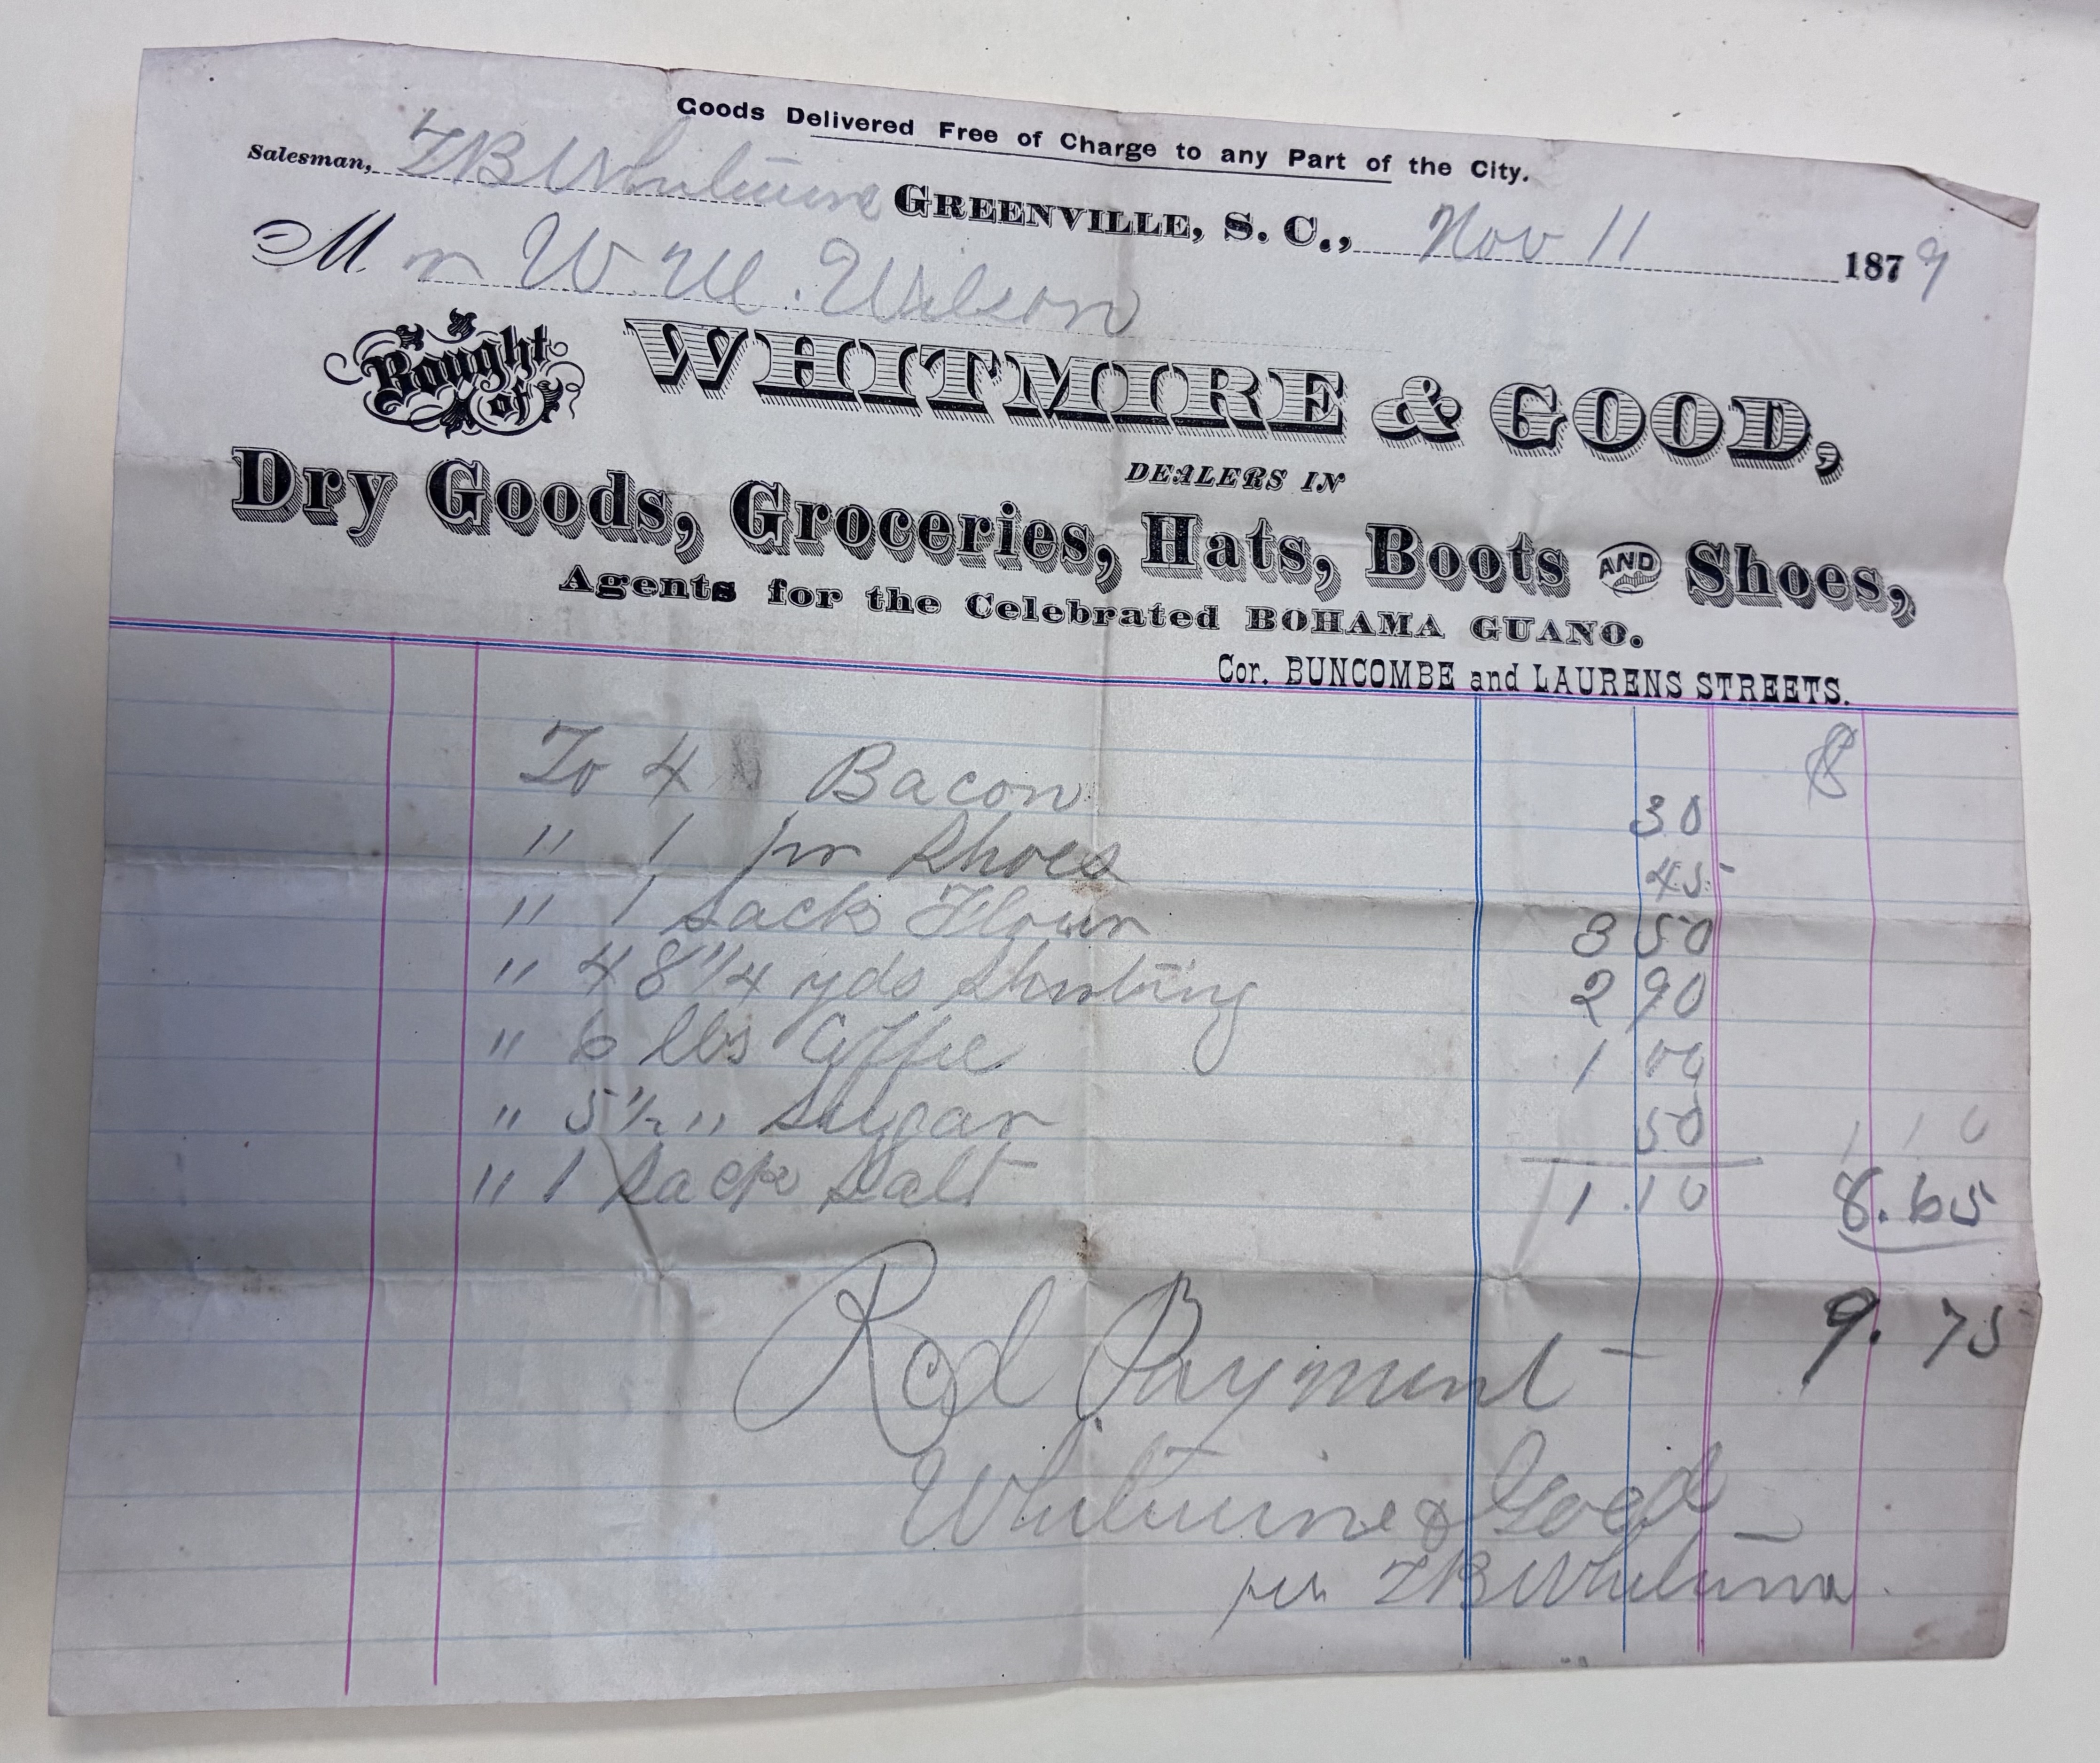 Goods Delivered Free of Charge to any Part of the City.
Salesman, Whitmire GREENVILLE, S. C., Nov 11 1879
Mr W. M. Wilson
Bought of WHITMIRE & GOOD,
DEALERS IN
Dry Goods, Groceries, Hats, Boots AND Shoes,
Agents for the Celebrated BOHAMA GUANO.
Cor. BUNCOMBE and LAURENS STREETS.
To 4 Bacon 30
" 1 pr Shoes 45
" 1 Sack Flour 3 50
" 48 1/4 yds Shirting 2 90
" 6 lbs Coffee 1 00
" 5 1/2 " Sugar 50 1 10
" 1 Sack Salt 1.10 8.65
9.75
Recd Payment —
Whitmire & Good —
per Whitmire